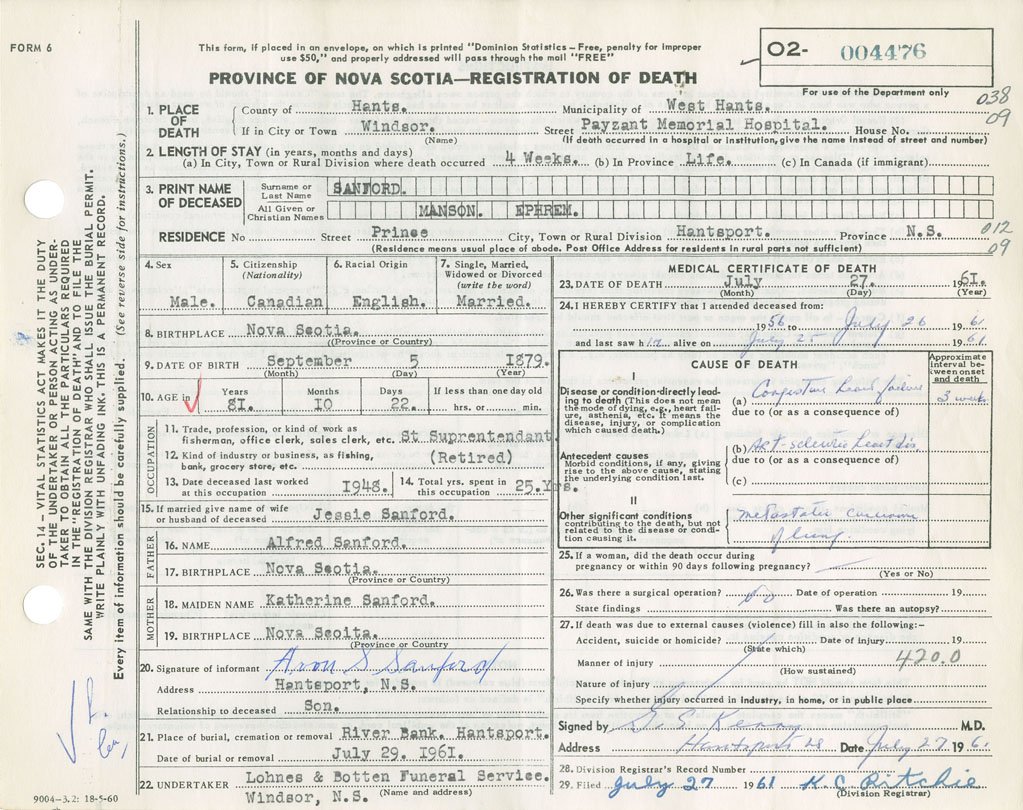 FORM 6
This form, if placed in an envelope, on which is printed "Dominion Statistics – Free, penalty for improper
use $50," and properly addressed will pass through the mail "FREE"
O2- 004476
PROVINCE OF NOVA SCOTIA—REGISTRATION OF DEATH
For use of the Department only
038
09
1. PLACE OF DEATH
County of Hants. Municipality of West Hants.
If in City or Town Windsor. Street Payzant Memorial Hospital. House No.
(Name) (If death occurred in a hospital or institution, give the name instead of street and number)
2. LENGTH OF STAY (in years, months and days)
(a) In City, Town or Rural Division where death occurred 4 Weeks. (b) In Province Life. (c) In Canada (if immigrant)
3. PRINT NAME OF DECEASED
Surname or Last Name SANFORD.
All Given or Christian Names MANSON. EPHREM.
RESIDENCE No Street Prince City, Town or Rural Division Hantsport. Province N.S.
012
09
(Residence means usual place of abode. Post Office Address for residents in rural parts not sufficient)
4. Sex
Male.
5. Citizenship (Nationality)
Canadian
6. Racial Origin
English.
7. Single, Married, Widowed or Divorced (write the word)
Married.
8. BIRTHPLACE Nova Scotia.
(Province or Country)
9. DATE OF BIRTH September 5 1879.
(Month) (Day) (Year)
10. AGE in Years Months Days If less than one day old
81. 10 22. hrs. or min.
OCCUPATION
11. Trade, profession, or kind of work as
fisherman, office clerk, sales clerk, etc. St Suprentendant
12. Kind of industry or business, as fishing,
bank, grocery store, etc. (Retired)
13. Date deceased last worked
at this occupation 1948.
14. Total yrs. spent in
this occupation 25.Yrs.
15. If married give name of wife
or husband of deceased Jessie Sanford.
FATHER
16. NAME Alfred Sanford.
17. BIRTHPLACE Nova Scotia.
(Province or Country)
MOTHER
18. MAIDEN NAME Katherine Sanford.
19. BIRTHPLACE Nova Scoita.
(Province or Country)
20. Signature of informant Aron S Sanford
Address Hantsport, N.S.
Relationship to deceased Son.
21. Place of burial, cremation or removal River Bank. Hantsport.
Date of burial or removal July 29. 1961.
22. UNDERTAKER Lohnes & Botten Funeral Service.
Windsor, N.S. (Name and address)
MEDICAL CERTIFICATE OF DEATH
23. DATE OF DEATH July 27. 1961.
(Month) (Day) (Year)
24. I HEREBY CERTIFY that I attended deceased from:
1956 to July 26 1961
and last saw him alive on July 25 1961
CAUSE OF DEATH
Approximate interval between onset and death
I
Disease or condition directly leading to death (This does not mean the mode of dying, e.g., heart failure, asthenia, etc. It means the disease, injury, or complication which caused death.)
(a) Congestive heart failure 3 weeks
due to (or as a consequence of)
Antecedent causes
Morbid conditions, if any, giving rise to the above cause, stating the underlying condition last.
(b) Art-sclerotic heart dis
due to (or as a consequence of)
(c)
II
Other significant conditions
contributing to the death, but not related to the disease or condition causing it.
metastatic carcinoma
of lung.
25. If a woman, did the death occur during
pregnancy or within 90 days following pregnancy?
(Yes or No)
26. Was there a surgical operation? no Date of operation 19
State findings Was there an autopsy?
27. If death was due to external causes (violence) fill in also the following:-
Accident, suicide or homicide? Date of injury 19
(State which)
Manner of injury 420.0
(How sustained)
Nature of injury
Specify whether injury occurred in industry, in home, or in public place
Signed by M.D.
Address Hantsport NS Date July 27 1961
28. Division Registrar's Record Number
29. Filed July 27 1961 K. C. Ritchie
(Division Registrar)
SEC. 14 – VITAL STATISTICS ACT MAKES IT THE DUTY
OF THE UNDERTAKER OR PERSON ACTING AS UNDER-
TAKER TO OBTAIN ALL THE PARTICULARS REQUIRED
IN THE "REGISTRATION OF DEATH" AND TO FILE THE
SAME WITH THE DIVISION REGISTRAR WHO SHALL ISSUE THE BURIAL PERMIT.
WRITE PLAINLY WITH UNFADING INK. THIS IS A PERMANENT RECORD.
Every item of information should be carefully supplied. (See reverse side for instructions.)
9004-3.2: 18-5-60